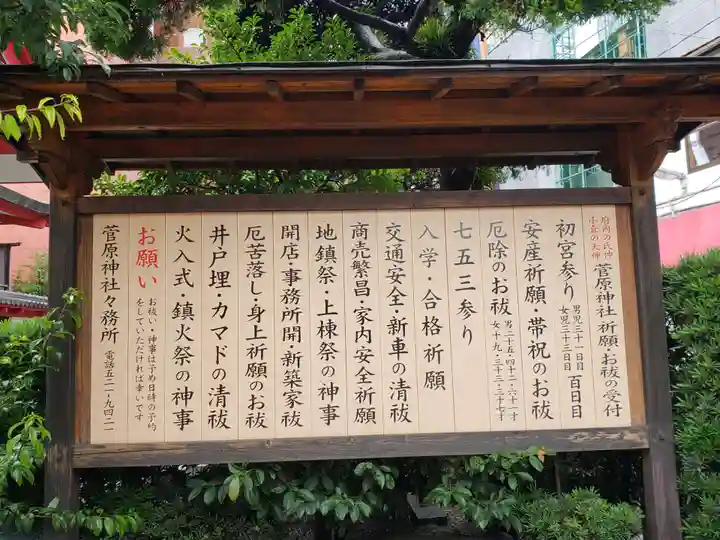 府内の氏神
小丘の天神
菅原神社 祈願・お祓の受付
初宮参り 男児三十一日目 女児三十三日目 百日目
安産祈願・帯祝のお祓
厄除のお祓 男二十五・四十二・六十一才 女十九・三十三・三十七才
七五三参り
入学・合格祈願
交通安全・新車の清祓
商売繁昌・家内安全祈願
地鎮祭・上棟祭の神事
開店・事務所開・新築家祓
厄苦落し・身上祈願のお祓
井戸埋・カマドの清祓
火入式・鎮火祭の神事
お願い
お祓い・神事は予め日時の予約
をしていただければ幸いです
菅原神社々務所 電話五二一-九四二一